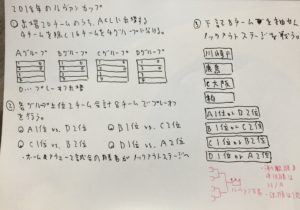 2018年のルヴァンカップ
① 出場20チームのうち、ACLに出場する
4チームを除く16チームをグループ分けする。
Aグループ Bグループ Cグループ Dグループ
② 各グループ上位2チーム合計8チームでプレーオフ
を行う。
① A1位 vs. D2位 ② B1位 vs. C2位
③ C1位 vs. B2位 ④ D1位 vs. A2位
・ホーム&アウェー2試合の勝者がノックアウトステージへ
③ 下記8チームでノックアウトステージを行う。
川崎F
鹿島
C大阪
柏
A1位 or D2位
B1位 or C2位
C1位 or B2位
D1位 or A2位